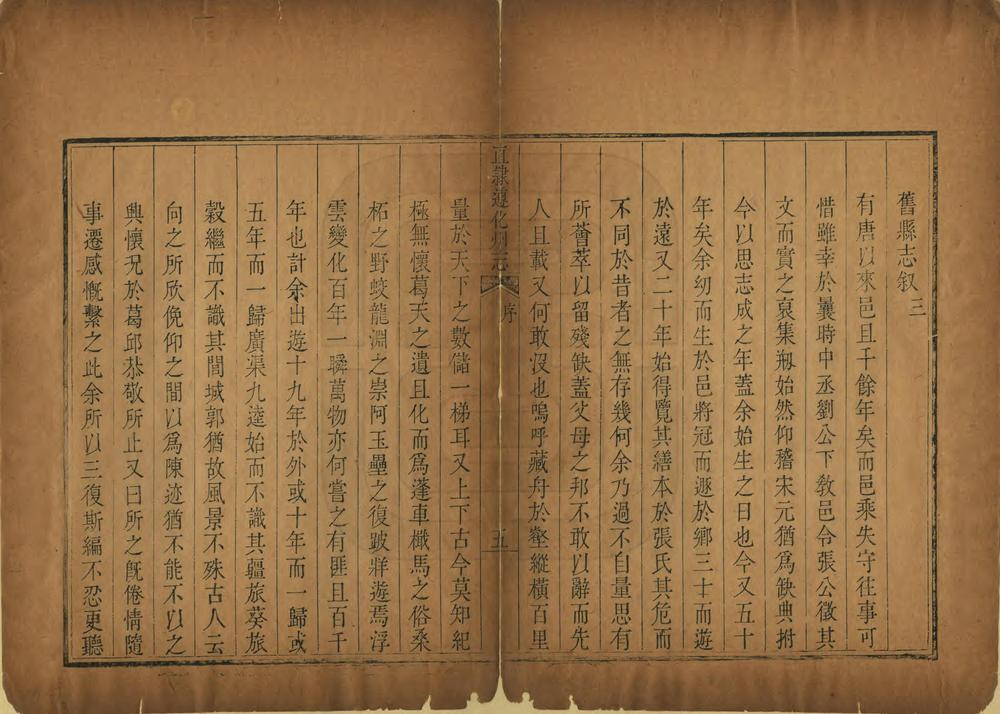 舊縣志叙三
有唐以來邑且千餘年矣而邑乘失守往事可
惜雖幸於曩時中丞劉公下教邑令張公徵其
文而實之裒集剏始然仰稽宋元猶爲缺典拊
今以思志成之年蓋余始生之日也今又五十
年矣余幼而生於邑將冠而遯於鄉三十而遊
於遠又二十年始得覽其繕本於張氏其危而
不同於昔者之無存幾何余乃過不自量思有
所薈萃以留殘缺蓋父母之邦不敢以辭而先
人且載又何敢沒也嗚呼藏舟於壑縱橫百里
直隸遵化州志
序
五
量於天下之數儲一梯耳又上下古今莫知紀
極無懷葛天之遺且化而爲蓬車檻馬之俗桑
柘之野蛟龍淵之崇阿玉壘之復跛牂遊焉浮
雲變化百年一瞬萬物亦何嘗之有匪且百千
年也計余出遊十九年於外或十年而一歸或
五年而一歸廣渠九逵始而不識其疆旅葵旅
穀繼而不識其閭城郭猶故風景不殊古人云
向之所欣俛仰之間以爲陳迹猶不能不以之
興懷况於葛邱恭敬所止又曰所之旣倦情隨
事遷感慨繫之此余所以三復斯編不忍更聽